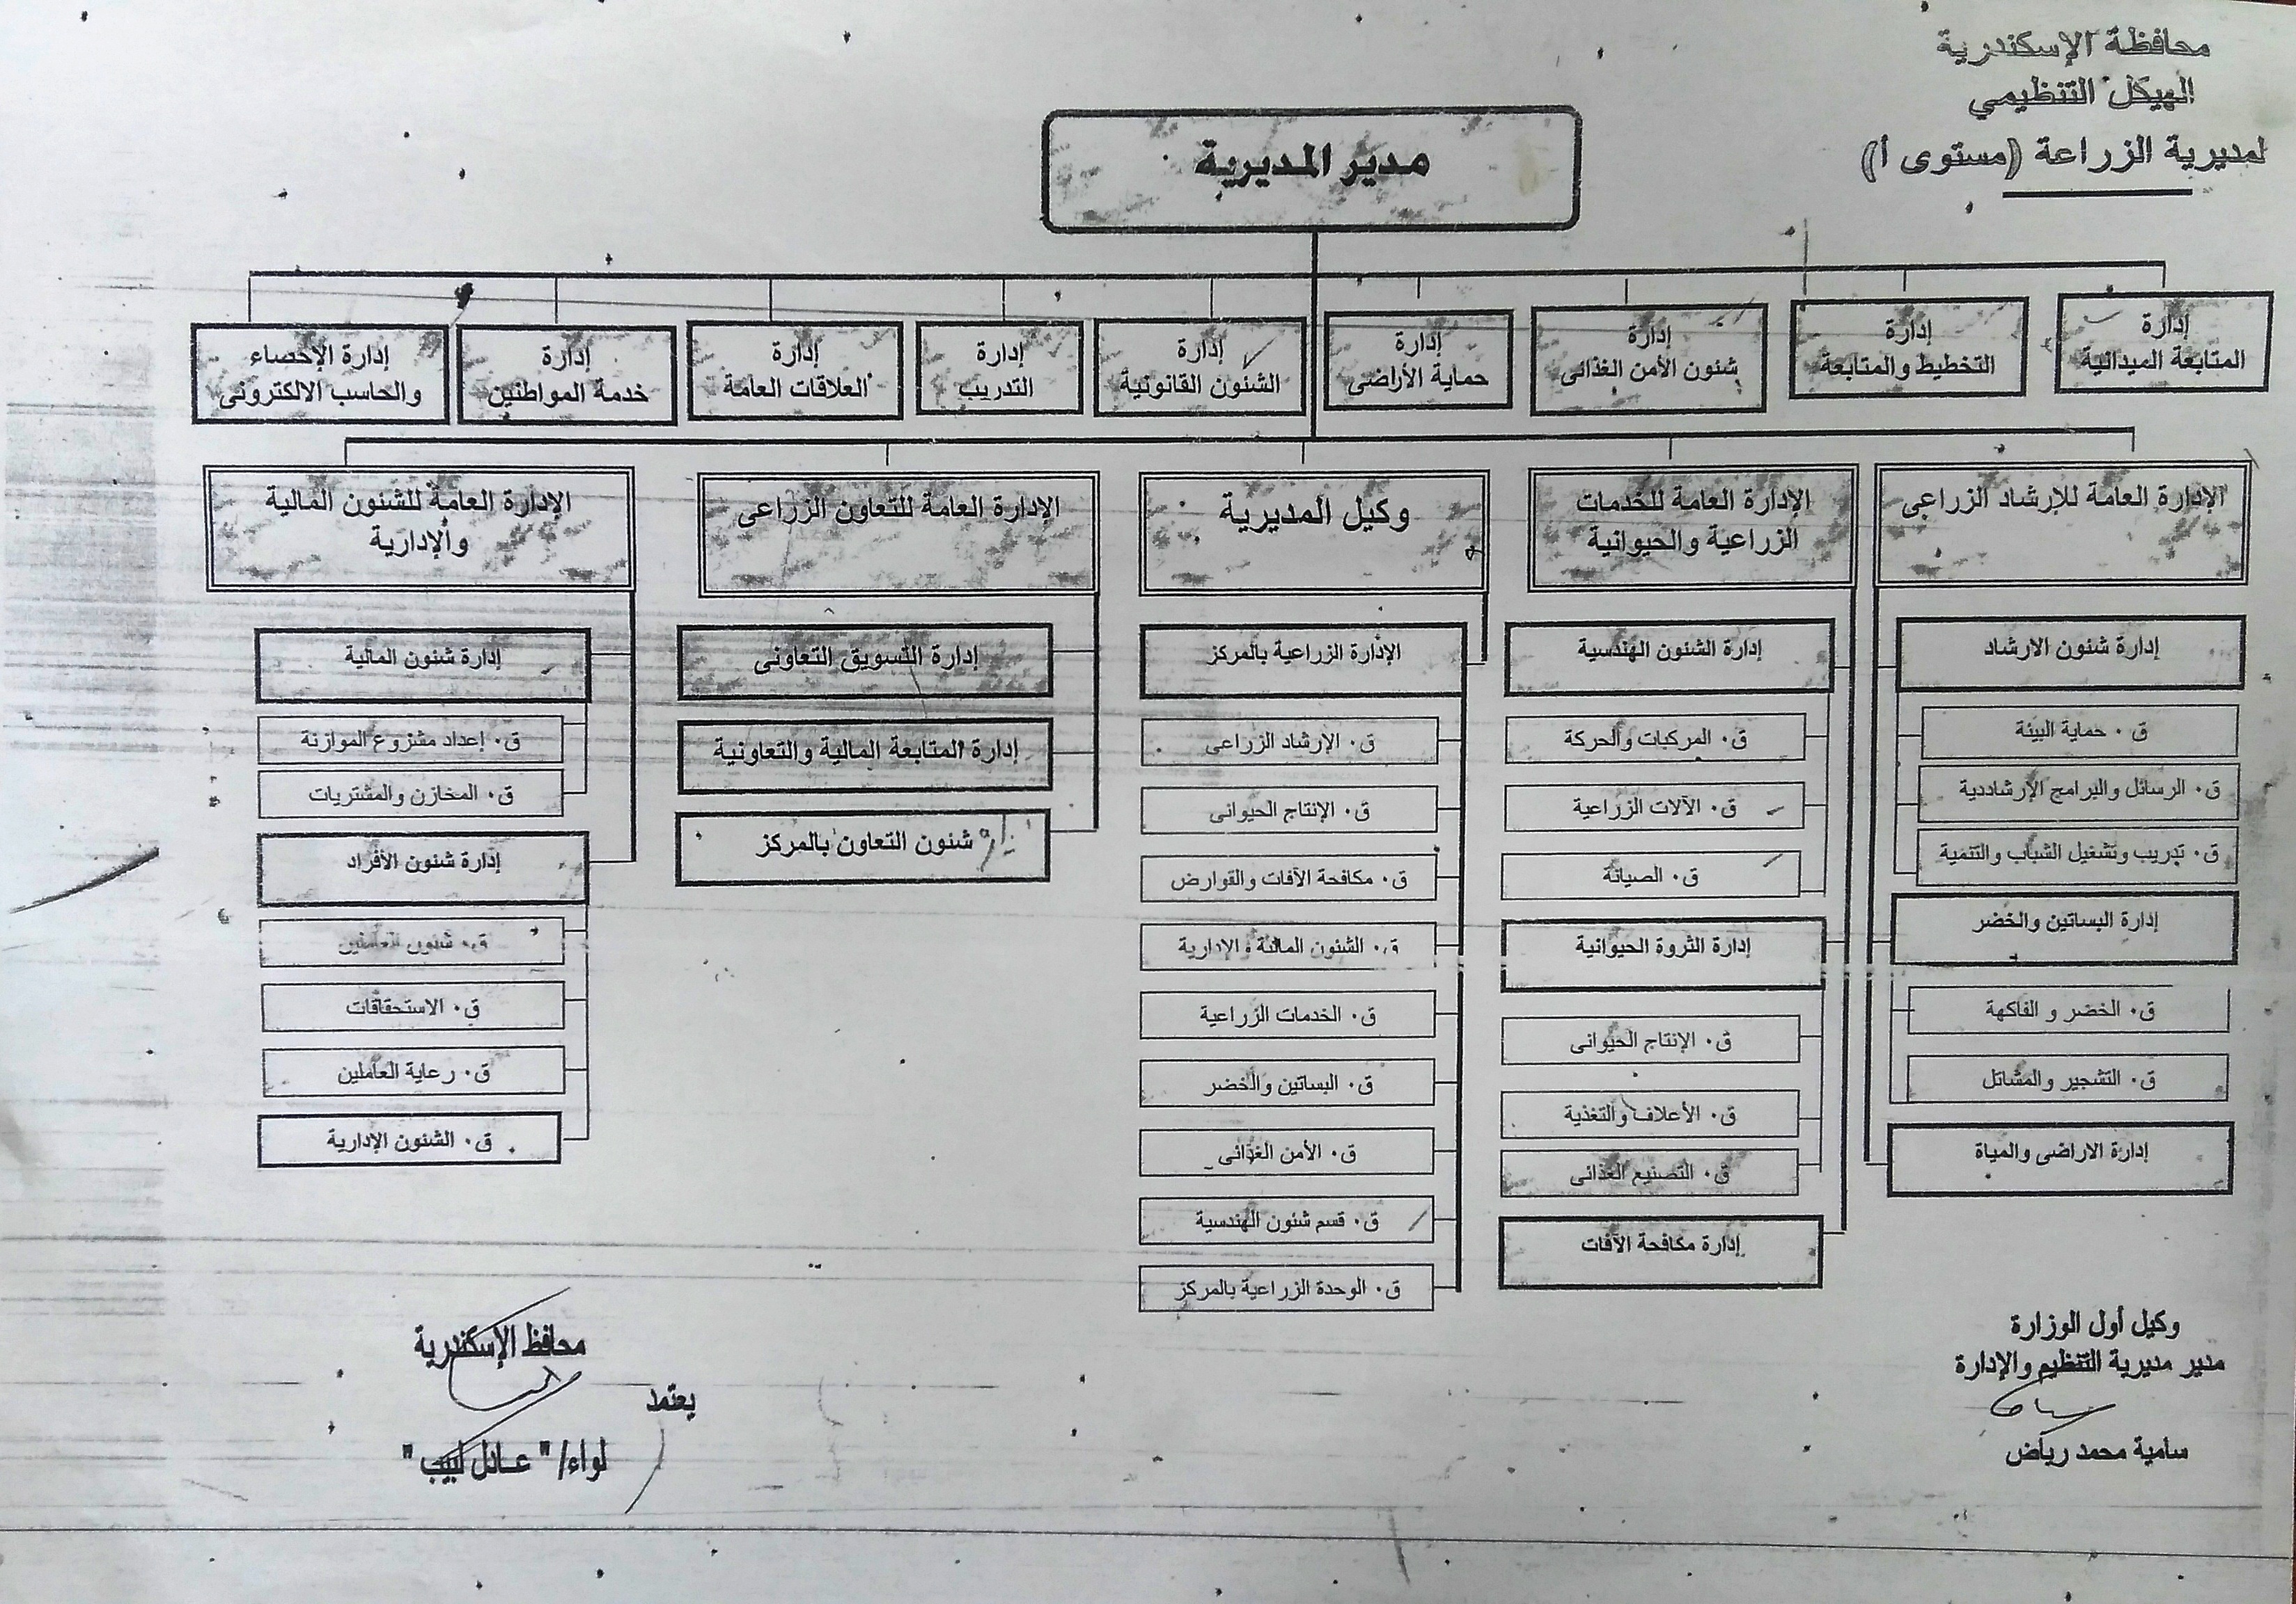 محافظة الإسكندرية
الهيكل التنظيمي
لمديرية الزراعة (مستوى أ)
مدير المديرية
إدارة
المتابعة الميدانية
إدارة
التخطيط والمتابعة
إدارة
شئون الأمن الغذائى
إدارة
حماية الأراضى
إدارة
الشئون القانونية
إدارة
التدريب
إدارة
العلاقات العامة
إدارة
خدمة المواطنين
إدارة الإحصاء
والحاسب الالكترونى
الإدارة العامة للإرشاد الزراعى
إدارة شئون الارشاد
ق٠ حماية البيئة
ق٠ الرسائل والبرامج الإرشاددية
ق٠ تدريب وتشغيل الشباب والتنمية
إدارة البساتين والخضر
ق٠ الخضر و الفاكهة
ق٠ التشجير والمشاتل
إدارة الاراضى والمياة
الإدارة العامة للخدمات
الزراعية والحيوانية
إدارة الشئون الهندسية
ق٠ المركبات والحركة
ق٠ الآلات الزراعية
ق٠ الصيانة
إدارة الثروة الحيوانية
ق٠ الإنتاج الحيوانى
ق٠ الأعلاف والتغذية
ق٠ التصنيع الغذائى
إدارة مكافحة الآفات
وكيل المديرية
الإدارة الزراعية بالمركز
ق٠ الإرشاد الزراعى
ق٠ الإنتاج الحيوانى
ق٠ مكافحة الآفات والقوارض
ق٠ الشئون المالية والإدارية
ق٠ الخدمات الزراعية
ق٠ البساتين والخضر
ق٠ الأمن الغذائى
ق٠ قسم شئون الهندسية
ق٠ الوحدة الزراعية بالمركز
الإدارة العامة للتعاون الزراعى
إدارة التسويق التعاونى
إدارة المتابعة المالية والتعاونية
شئون التعاون بالمركز
الإدارة العامة للشئون المالية
والإدارية
إدارة شئون المالية
ق٠ إعداد مشروع الموازنة
ق٠ المخازن والمشتريات
إدارة شئون الأفراد
ق٠ شئون العاملين
ق٠ الاستحقاقات
ق٠ رعاية العاملين
ق٠ الشئون الإدارية
وكيل أول الوزارة
مدير مديرية التنظيم والإدارة
سامية محمد رياض
يعتمد
محافظ الإسكندرية
لواء/ " عادل لبيب "